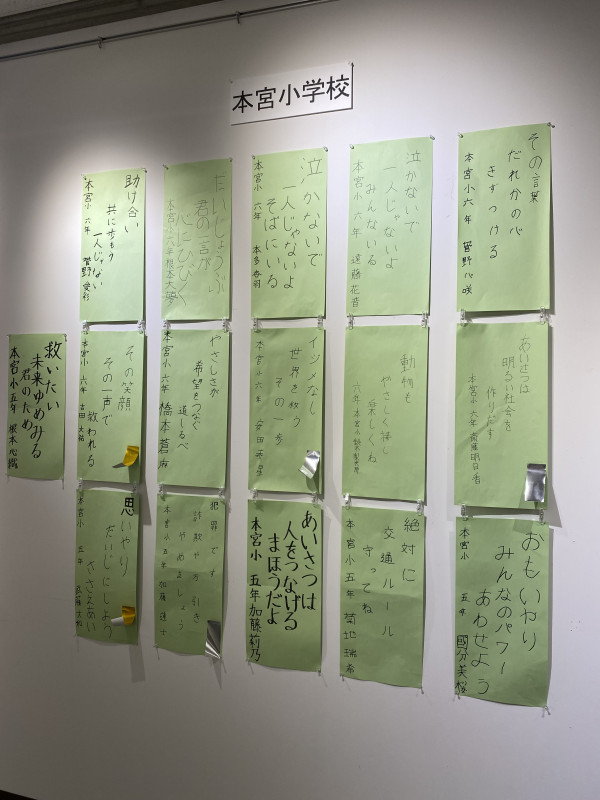 本宮小学校
その言葉
だれかの心
きずつける
本宮小 六年 菅野心咲
泣かないで
一人じゃないよ
みんないる
本宮小 六年 遠藤花音
泣かないで
一人じゃないよ
そばにいる
本宮小 六年 本多
だいじょうぶ
君の一言が
心にひびく
本宮小 六年 根本大
助け合い
共に歩もう
一人じゃない
本宮小 六年 菅野愛彩
あいさつは
明るい社会を
作りだす
本宮小 六年 斎藤明日香
動物も
やさしく接し
楽しくね
六年 本宮小
イジメなし
世界を救う
その一歩
本宮小 六年 安田
やさしさが
希望をつなぐ
道しるべ
本宮小 六年 橋本蒼麻
その笑顔
その一声で
救われる
本宮小 六年 古田大
救いたい
未来ゆめみる
君のため
本宮小 五年 根本心
おもいやり
みんなのパワー
あわせよう
本宮小 五年 國分美桜
絶対に
交通ルール
守ってね
本宮小 五年 菊地瑞希
あいさつは
人をつなげる
まほうだよ
本宮小 五年 加藤莉乃
犯罪です
詐欺や万引き
やめましょう
本宮小 五年 加藤
思いやり
だいじにしよう
ささえあい
本宮小 五年 武藤大